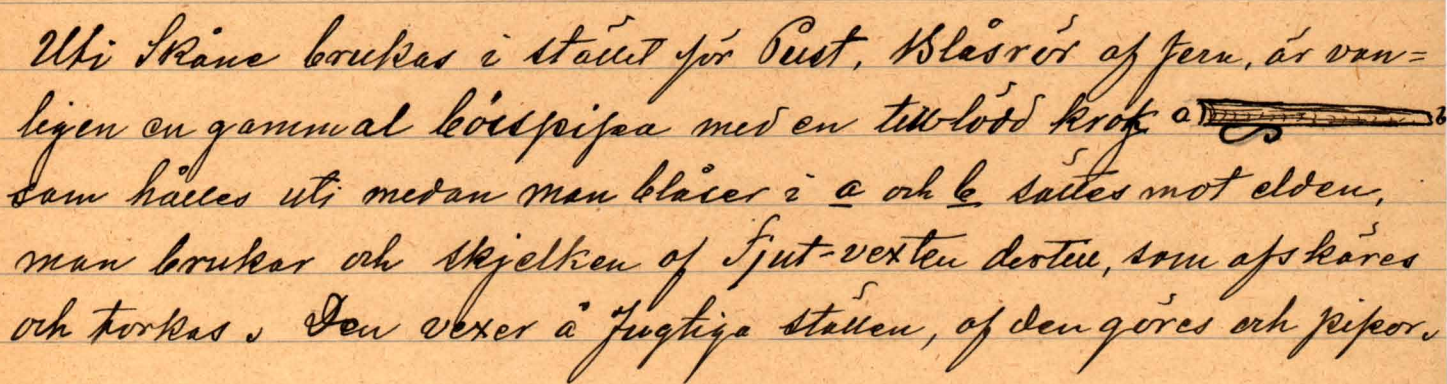 Uti Skåne brukas i stället för Pust, Blåsrör af Jern, är van=
ligen en gammal bösspipa med en tillödd krok a b
som hålles uti medan man blåser i a och b sättes mot elden,
man brukar och skjelken af Fjut-vexten dertill, som afskäres
och torkas. Den vexer å fugtiga ställen, af den göres och pipor.